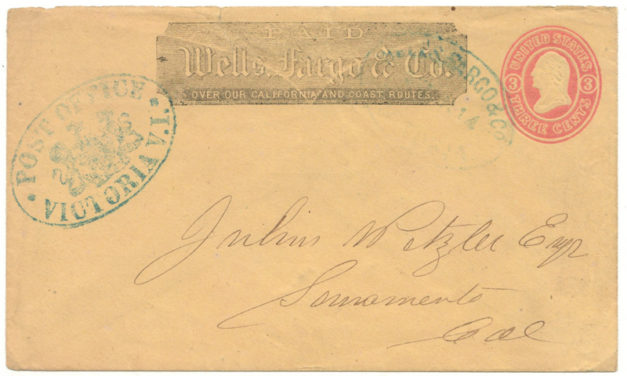 PAID
Wells, Fargo & Co.
OVER OUR CALIFORNIA AND COAST ROUTES.
FARGO & CO
UNITED STATES
3 3
THREE CENTS
POST OFFICE
VICTORIA V.I.
Julius Wetzler Esqr
Sacramento
Cal